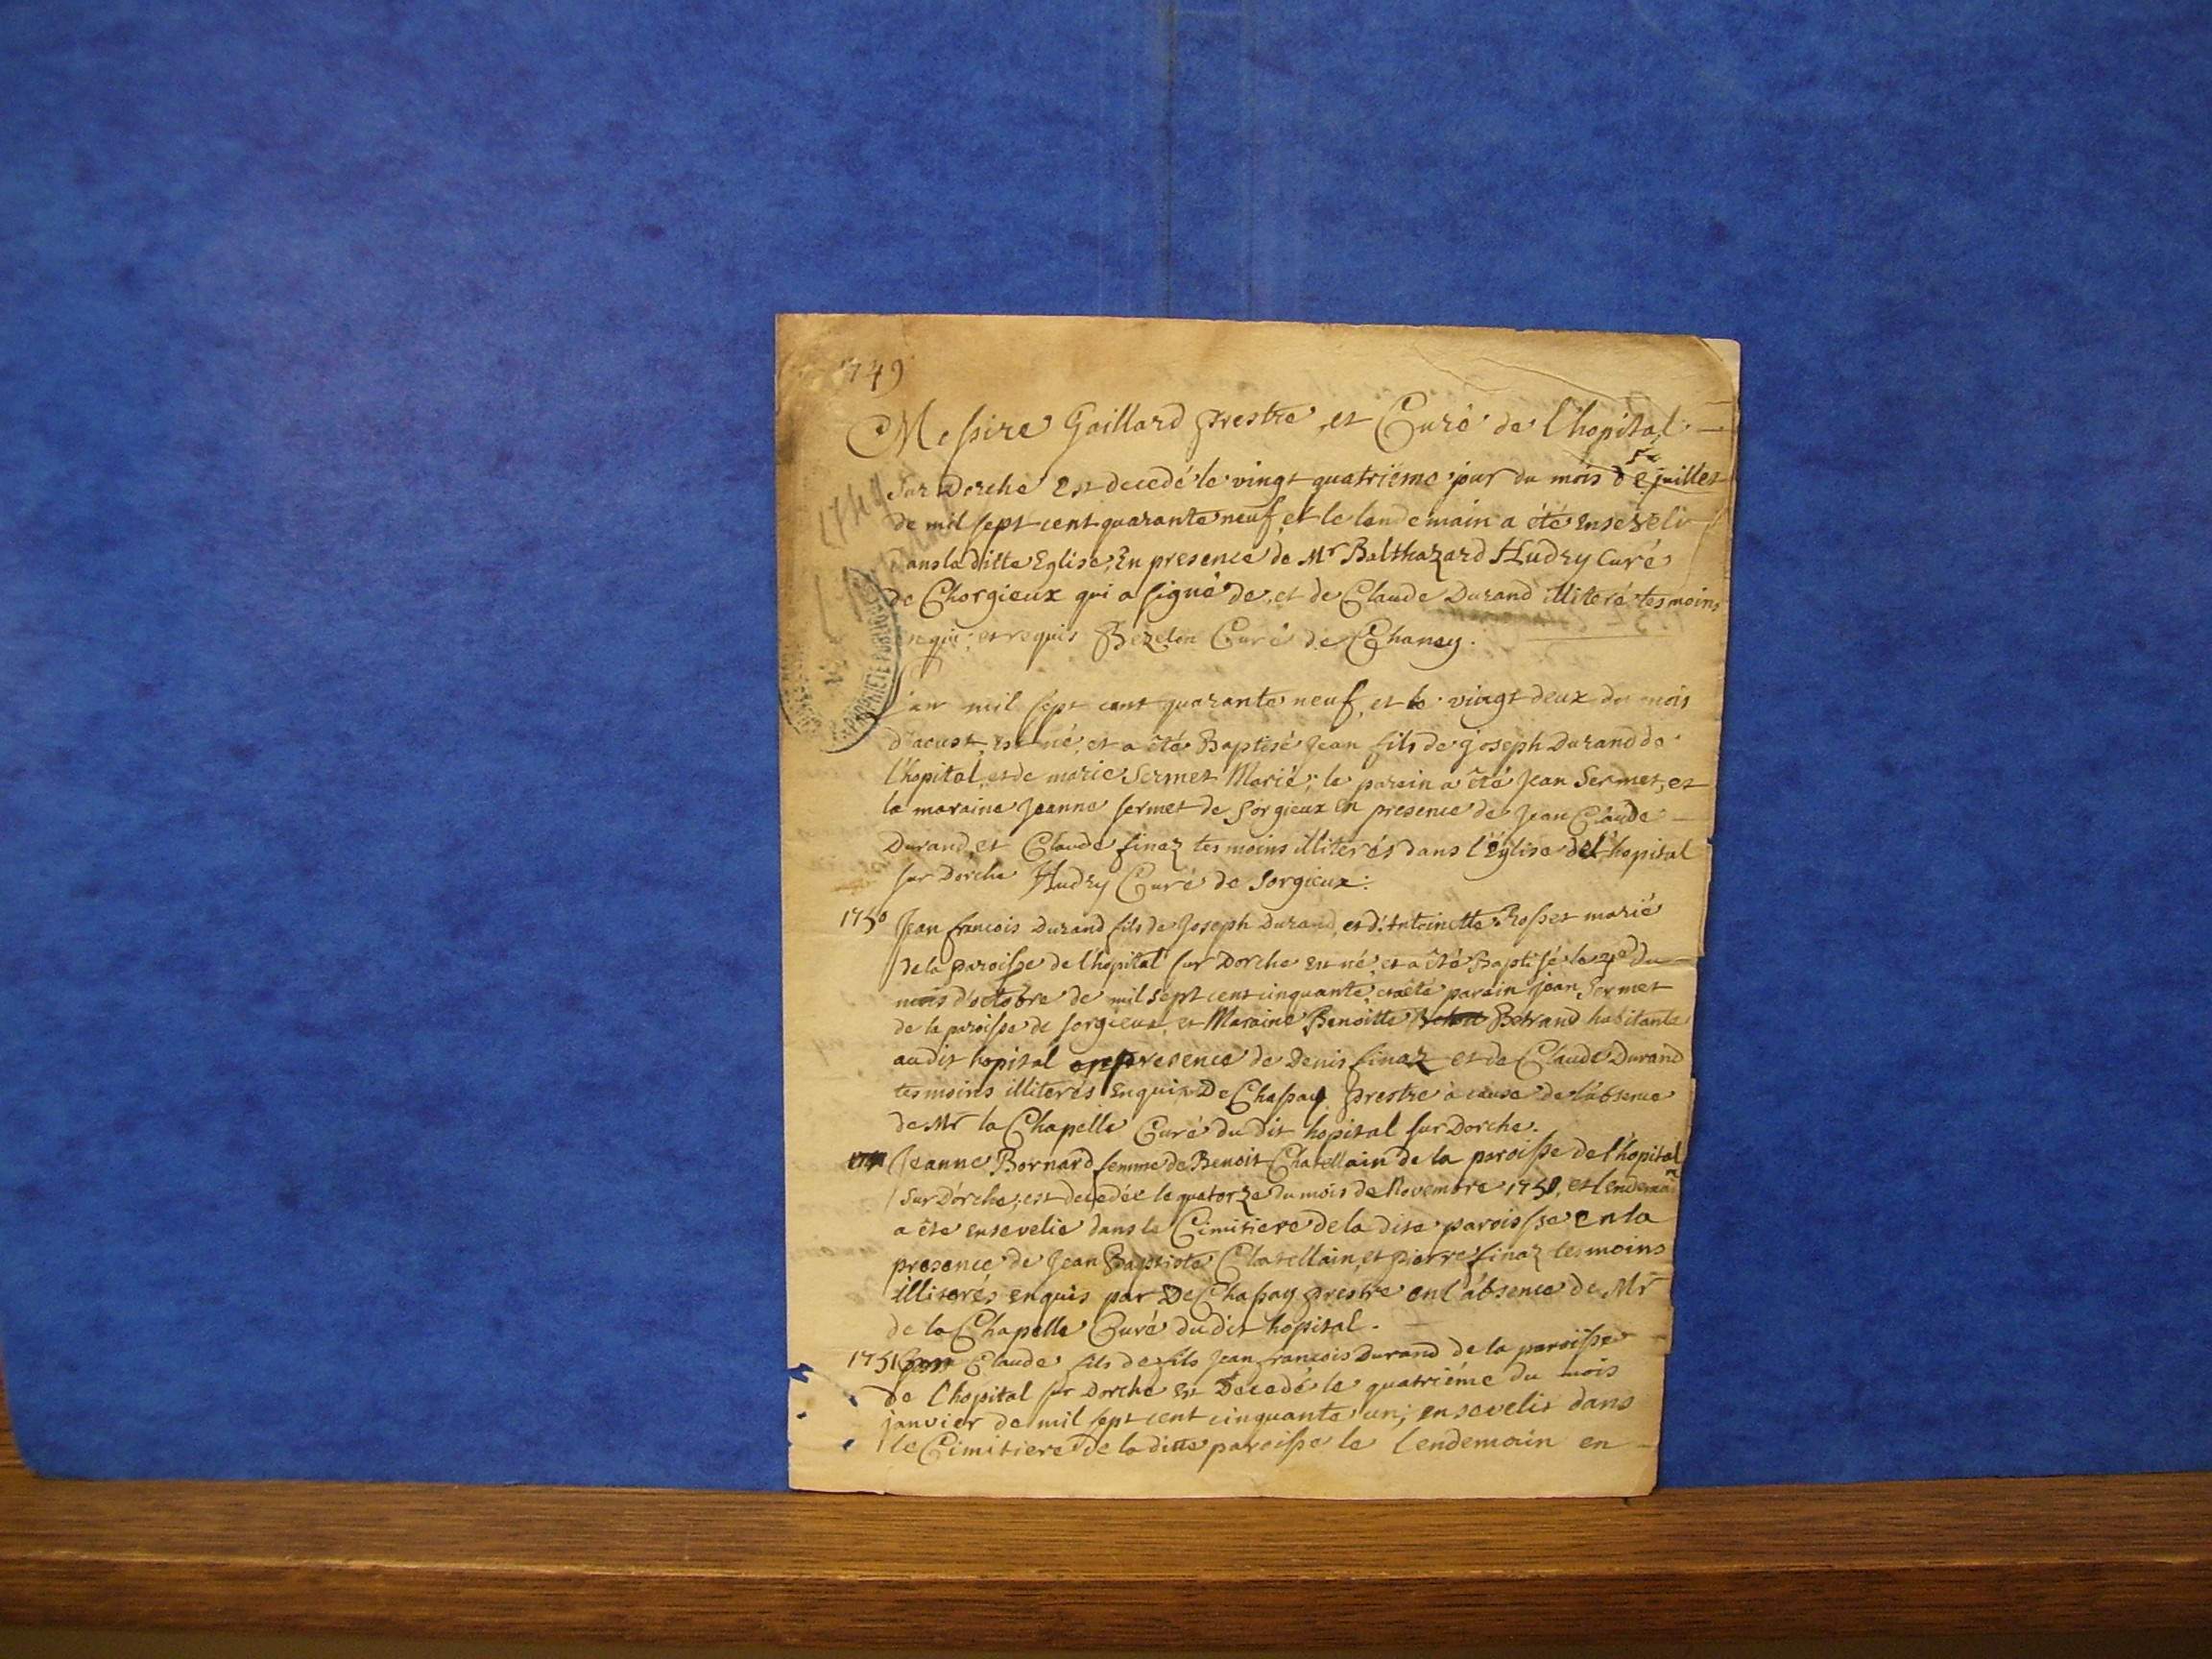 1749
Messire Gaillard prestre et Curé de l'hopital
sur Dorche Est decedé le vingt quatriéme jour du mois de juillet
de mil sept cent quarante neuf et le lendemain a été enseveli
dans la ditte Eglise, En presence de Mr Balthazard Hudry Curé
de Chorgieux qui a signé de, et de Claude Durand illiteré tesmoins
requis Bezelon Curé de Chanay.
l'an mil sept cent quarante neuf, et le vingt deux du mois
d'acust, est né, et a été Baptisé Jean fils de joseph Durand de
l'hopital, et de marie Sermet Marié; le parain a été Jean Sermet, et
la maraine Jeanne sermet de Sorgieux en presence de Jean Claude
Durand, et Claude finaz tesmoins illiterés dans l'Eglise de l'hopital
sur Dorche Hudry Curé de Sorgieux.
1750 Jean francois Durand fils de Joseph Durand, et d'Antoinette Rosset marié
de la paroisse de l'hopital sur Dorche est né, et a été Baptisé le 4e du
mois d'octobre de mil sept cent cinquante, et a été parain jean Sermet
de la paroisse de sorgieux, et Maraine Benoitte Betrand habitante
au dit hopital en presence de Denis finaz et de Claude Durand
tesmoins illiterés Enquis De Chassay prestre a cause de l'absence
de Mr la Chapelle Curé du dit hopital sur Dorche.
Jeanne Bornard femme de Benoit Chatellain de la paroisse de l'hopital
sur Dorche, est decedée le quatorze du mois de Novembre 1750, et lendemain
a été ensevelie dans le Cimitiere de la dite paroisse en la
presence de Jean Baptiste Chatellain, et pierre finaz tesmoins
illiterés enquis par De Chassay prestre en l'absence de Mr
de la Chapelle Curé du dit hopital.
1751 Claude fils de fils Jean francois Durand de la paroisse
de l'hopital sur Dorche est Decedé le quatriéme du mois
janvier de mil sept cent cinquante un; ensevelit dans
le Cimitiere de la ditte paroisse le lendemain en